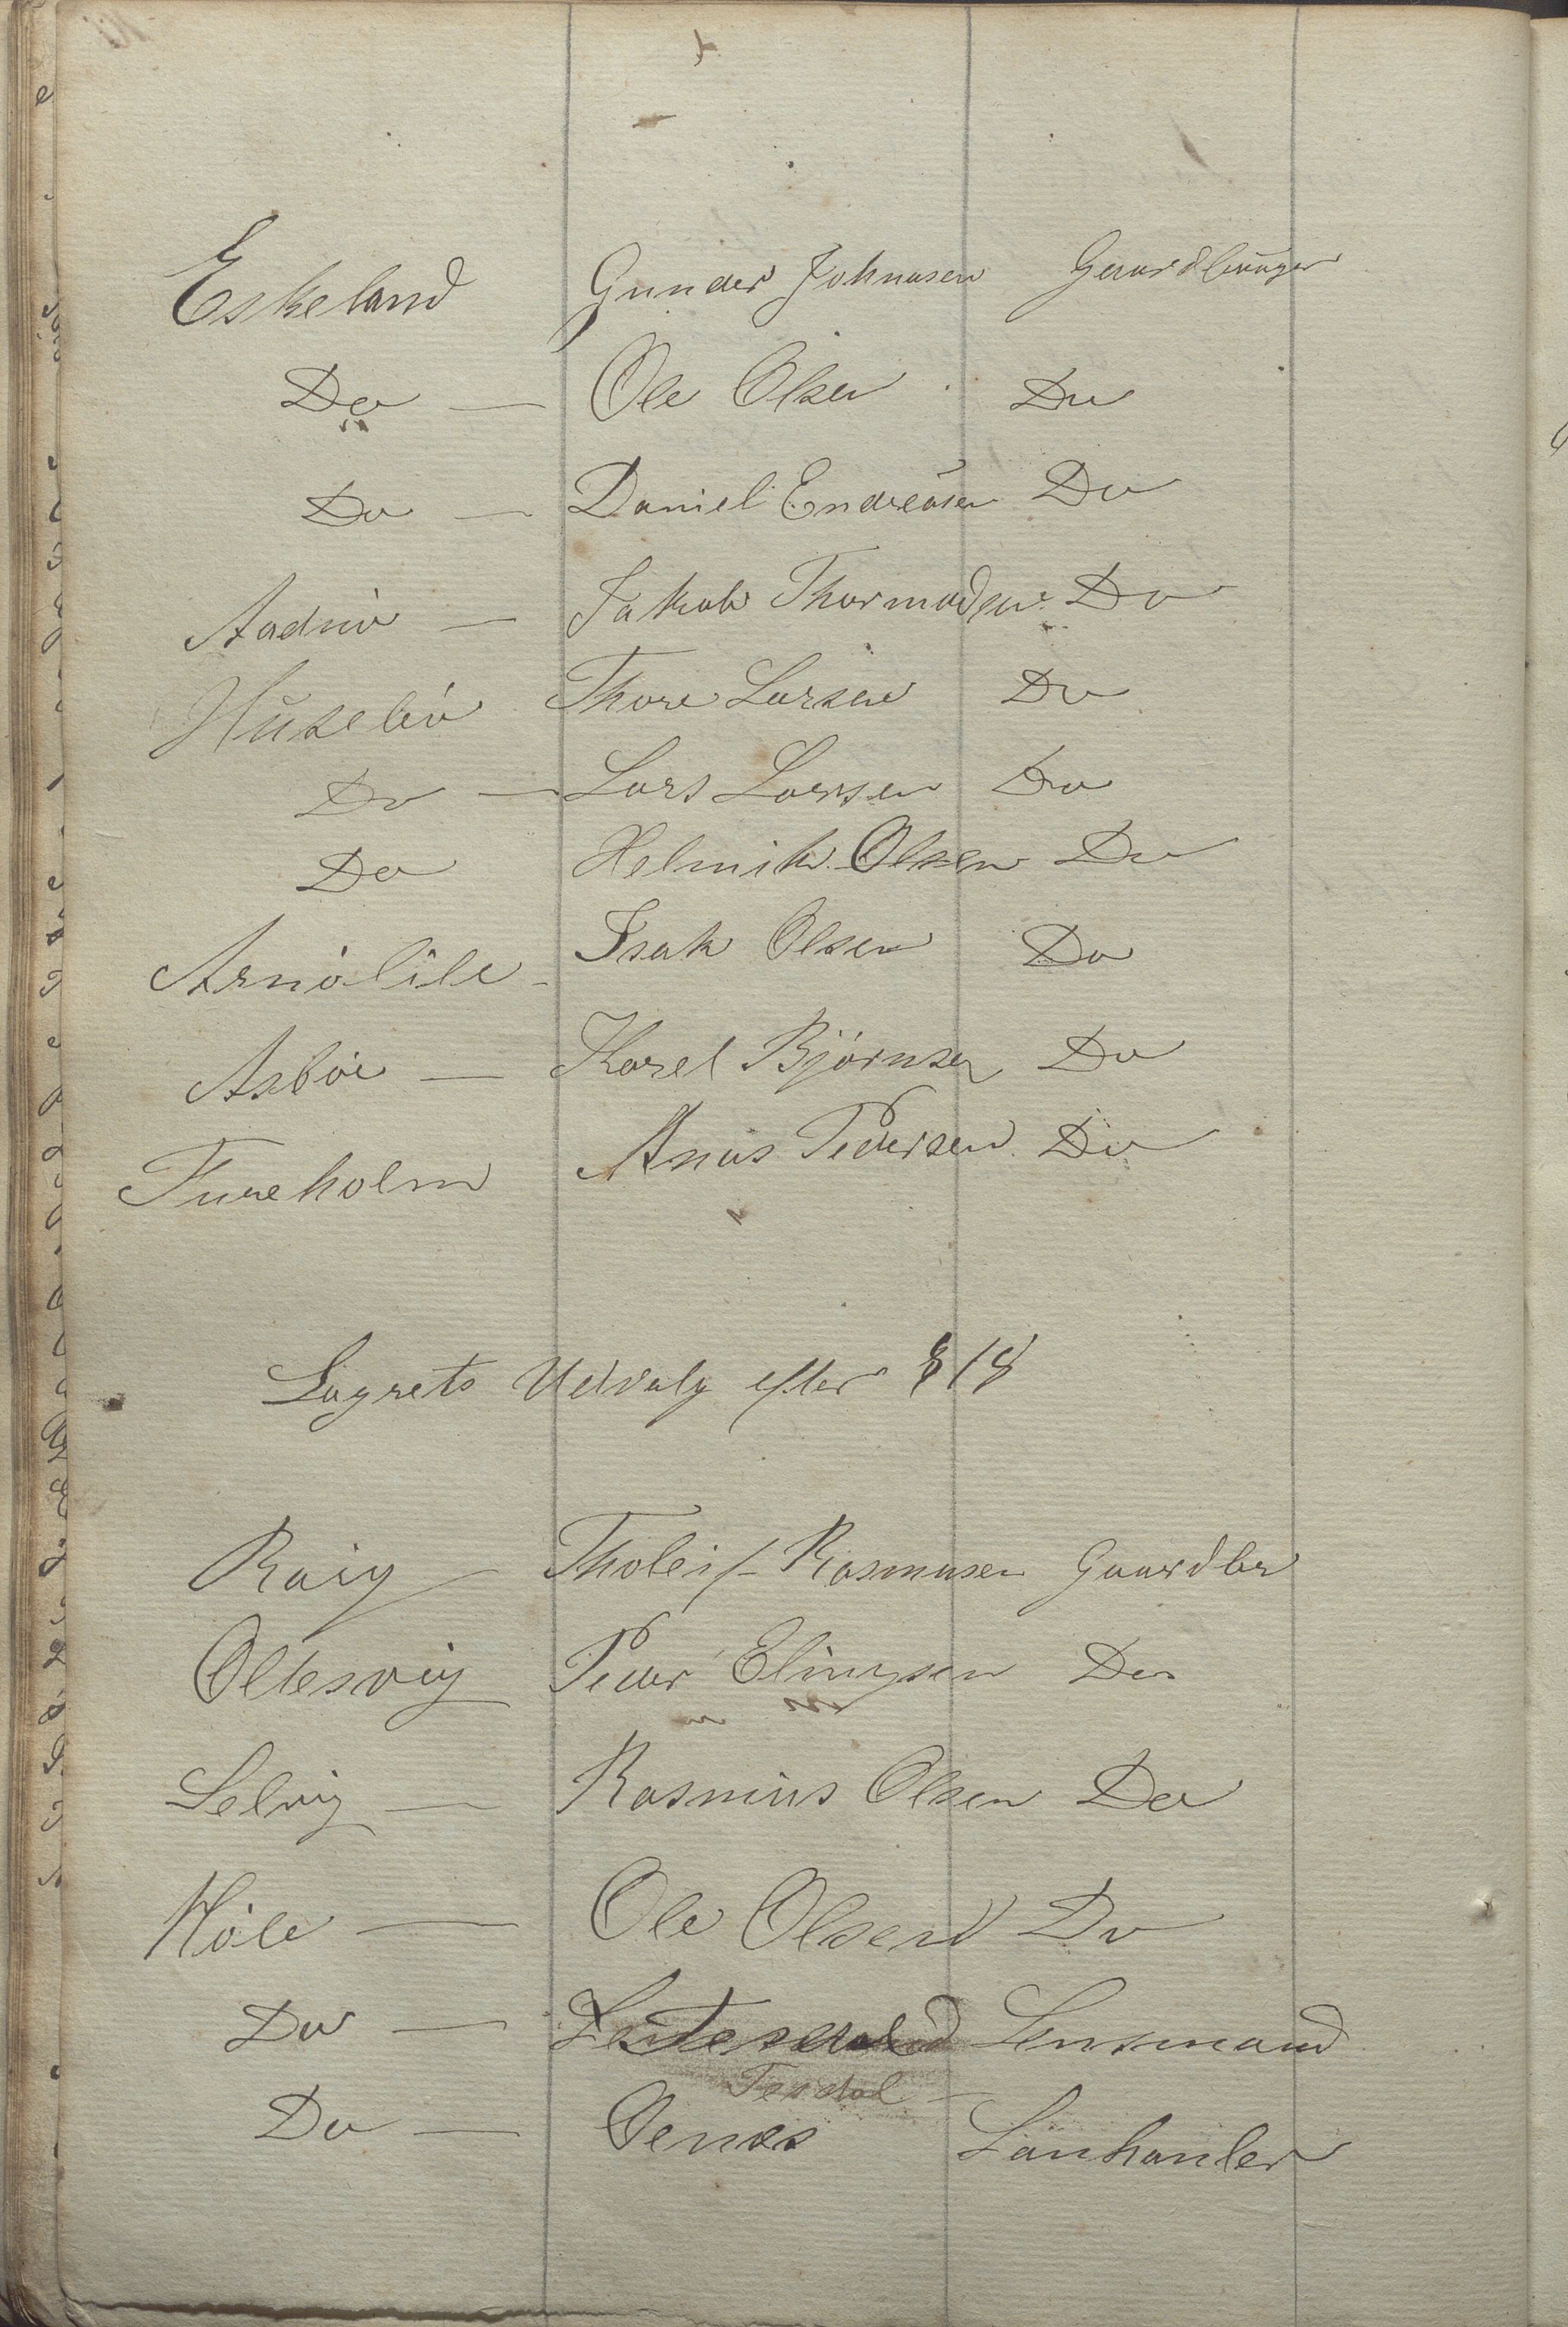 Eskeland Gunder Johnasen Gaardbruger
Do — Ole Olsen Do
Do — Daniel Endreasen Do
Aadnö — Jakob Thormodsen Do
Husebö Thore Larsen Do
Do — Lars Larsen Do
Do Helmik Olsen Do
Arnölile - Isak Olsen Do
Asböe — Karel Björnsen Do
Fureholm Anas Pedersen Do
Lagrets Udvalg efter § 18
Roig Tholeif Rasmusen Gaardbr
Oltesvig Peder Elingsen Do
Selvig — Rasmus Olsen Do
Höle — Ole Olsen Do
Do — Lensmand
Tesdal
Do — Oenes Lanhanler